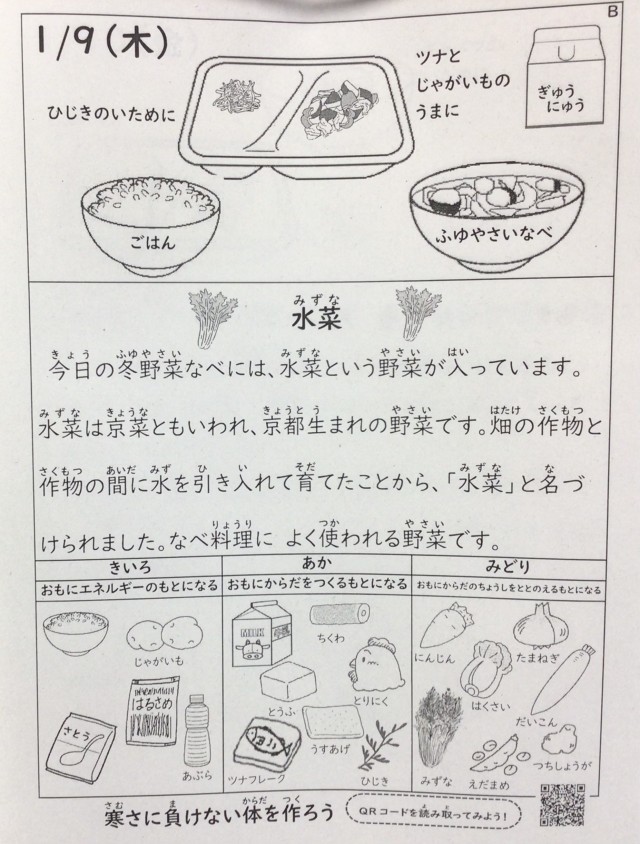 B
1/9(木)
ひじきのいために
ツナと
じゃがいもの
うまに
ぎゅう
にゅう
ごはん
ふゆやさいなべ
みずな
水菜
きょう ふゆやさい みずな やさい はい
今日の冬野菜なべには、水菜という野菜が入っています。
みずな きょうな きょうと う やさい はたけ さくもつ
水菜は京菜ともいわれ、京都生まれの野菜です。畑の作物と
さくもつ あいだ みず ひ い そだ みずな な
作物の間に水を引き入れて育てたことから、「水菜」と名づ
りょうり つか やさい
けられました。なべ料理に よく使われる野菜です。
きいろ あか みどり
おもにエネルギーのもとになる おもにからだをつくるもとになる おもにからだのちょうしをととのえるもとになる
じゃがいも
はるさめ
さとう
あぶら
MILK
ちくわ
とりにく
とうふ
うすあげ
ツナフレーク
ひじき
にんじん
たまねぎ
はくさい
だいこん
みずな
えだまめ
つちしょうが
さむ ま からだ つく
寒さに負けない体を作ろう
よ と
QRコードを読み取ってみよう!